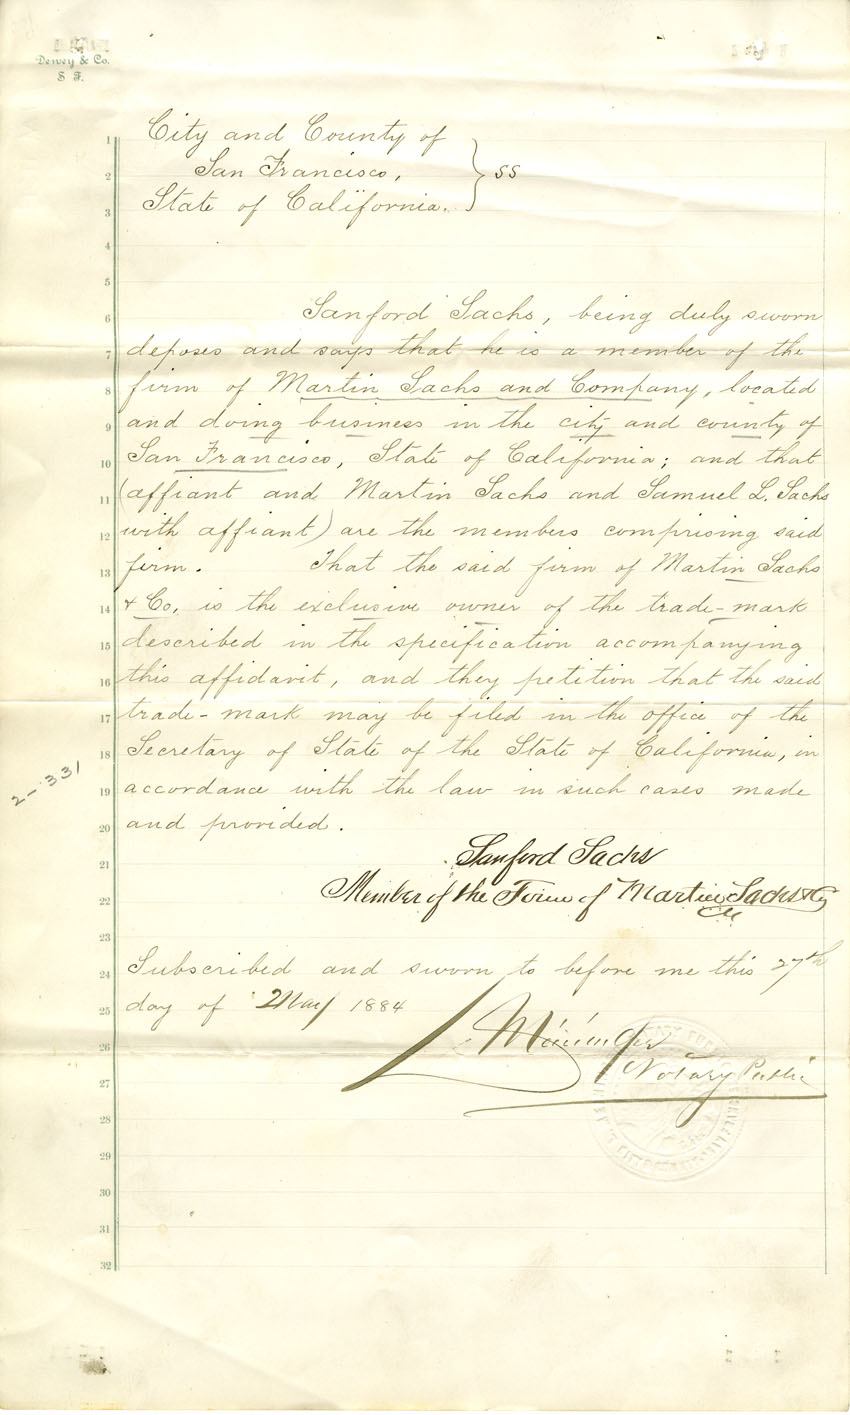 Dewey & Co.
S F.
City and County of
San Francisco,
State of California.
} ss
1
2
3
4
5
6 Sanford Sachs, being duly sworn
7 deposes and says that he is a member of the
8 firm of Martin Sachs and Company, located
9 and doing business in the city and county of
10 San Francisco, State of California; and that
11 (affiant and Martin Sachs and Samuel L. Sachs
12 with affiant) are the members comprising said
13 firm. That the said firm of Martin Sachs
14 & Co, is the exclusive owner of the trade-mark
15 described in the specification accompanying
16 this affidavit, and they petition that the said
17 trade-mark may be filed in the office of the
18 Secretary of State of the State of California, in
19 accordance with the law in such cases made
20 and provided.
2-331
21 Sanford Sachs
22 Member of the Firm of Martin Sachs & Co
23
24 Subscribed and sworn to before me this 27th
25 day of May 1884
26
27 Notary Public
28
29
30
31
32